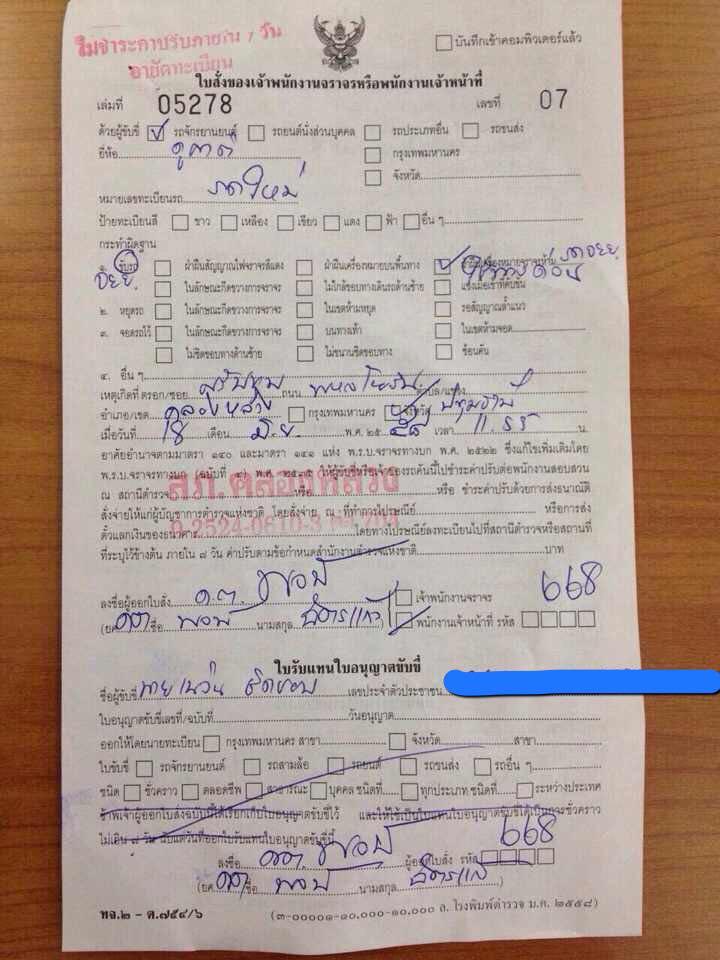 ไม่ชำระค่าปรับภายใน 7 วัน
อายัดทะเบียน
บันทึกเข้าคอมพิวเตอร์แล้ว
ใบสั่งของเจ้าพนักงานจราจรหรือพนักงานเจ้าหน้าที่
เล่มที่ 05278 เลขที่ 07
ด้วยผู้ขับขี่ รถจักรยานยนต์ รถยนต์นั่งส่วนบุคคล รถประเภทอื่น รถขนส่ง
ยี่ห้อ ดูคาติ กรุงเทพมหานคร
จังหวัด
หมายเลขทะเบียนรถ รถใหม่
ป้ายทะเบียนสี ขาว เหลือง เขียว แดง ฟ้า อื่น ๆ
กระทำผิดฐาน
ขับรถ ฝ่าฝืนสัญญาณไฟจราจรสีแดง ฝ่าฝืนเครื่องหมายบนพื้นทาง
ในลักษณะกีดขวางการจราจร ไม่ใกล้ขอบทางเดินรถด้านซ้าย แซงเมื่อเข้าที่คับขัน
๒. หยุดรถ ในลักษณะกีดขวางการจราจร ในเขตห้ามหยุด รอสัญญาณล้ำแนว
๓. จอดรถไว้ ในลักษณะกีดขวางการจราจร บนทางเท้า ในเขตห้ามจอด
ไม่ชิดขอบทางด้านซ้าย ไม่ขนานชิดขอบทาง ซ้อนคัน
๔. อื่น ๆ
เหตุเกิดที่ ตรอก/ซอย ถนน พหลโยธิน ตำบล/แขวง
อำเภอ/เขต คลองหลวง กรุงเทพมหานคร จังหวัด ปทุมธานี
เมื่อวันที่ 18 เดือน มิ.ย. พ.ศ. ๒๕ ๕๘ เวลา 11.55 น.
อาศัยอำนาจตามมาตรา ๑๔๐ และมาตรา ๑๔๑ แห่ง พ.ร.บ.จราจรทางบก พ.ศ. ๒๕๒๒ ซึ่งแก้ไขเพิ่มเติมโดย
พ.ร.บ.จราจรทางบก (ฉบับที่ ๔) พ.ศ. ๒๕๓๕ ให้ผู้ขับขี่หรือเจ้าของรถคันนี้ไปชำระค่าปรับต่อพนักงานสอบสวน
สภ.คลองหลวง
ณ สถานีตำรวจ หรือ หรือ ชำระค่าปรับด้วยการส่งธนาณัติ
สั่งจ่ายให้แก่ผู้บัญชาการตำรวจแห่งชาติ โดยสั่งจ่าย ณ ที่ทำการไปรษณีย์ หรือการส่ง
ตั๋วแลกเงินของธนาคาร โดยทางไปรษณีย์ลงทะเบียนไปที่สถานีตำรวจหรือสถานที่
ที่ระบุไว้ข้างต้น ภายใน ๗ วัน ค่าปรับตามข้อกำหนดสำนักงานตำรวจแห่งชาติ บาท
ลงชื่อผู้ออกใบสั่ง ด.ต. เจ้าพนักงานจราจร 668
(ยศ ชื่อ นามสกุล พนักงานเจ้าหน้าที่ รหัส
ใบรับแทนใบอนุญาตขับขี่
ชื่อผู้ขับขี่ เลขประจำตัวประชาชน
ใบอนุญาตขับขี่เลขที่/ฉบับที่ วันอนุญาต
ออกให้โดยนายทะเบียน กรุงเทพมหานคร สาขา จังหวัด สาขา
ใบขับขี่ รถจักรยานยนต์ รถสามล้อ รถยนต์ รถขนส่ง รถอื่น ๆ
ชนิด ชั่วคราว ตลอดชีพ สาธารณะ บุคคล ชนิดที่ ทุกประเภท ชนิดที่ ระหว่างประเทศ
ข้าพเจ้าผู้ออกใบสั่งฉบับนี้ได้เรียกเก็บใบอนุญาตขับขี่ไว้ และให้ใช้เป็นใบแทนใบอนุญาตขับขี่ได้เป็นการชั่วคราว
ไม่เกิน ๗ วัน นับแต่วันที่ออกใบรับแทนใบอนุญาตขับขี่นี้
ลงชื่อ ผู้ออกใบสั่ง รหัส 668
(ยศ ชื่อ นามสกุล )
พจ.๒ - ต.๗๕๔/๖ (๓-๐๐๐๐๑-๑๐,๐๐๐-๑๐,๐๐๐ ล. โรงพิมพ์ตำรวจ ม.ค. ๒๕๕๘)